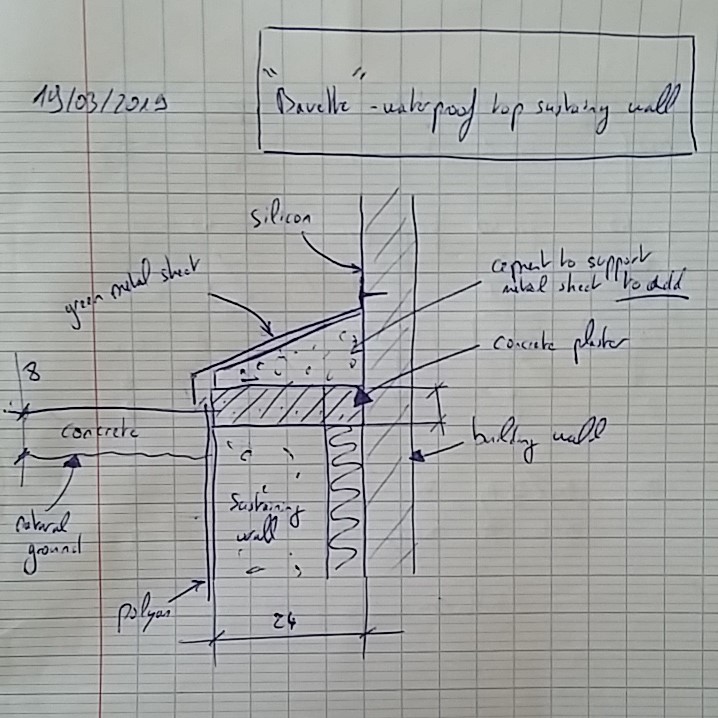 19/03/2019
"Bavette" - waterproof top sustaining wall
silicon
green metal sheet
cement to support
metal sheet to add
concrete plaster
8
concrete
building wall
natural
ground
Sustaining
wall
polyan
24